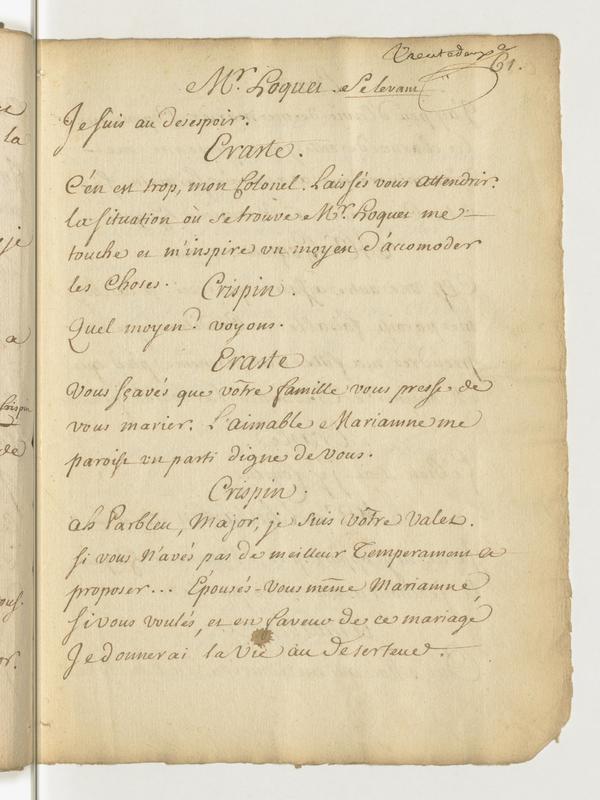 Trente deux
61.
Mr. Loquet. Se levant
Je suis au desespoir.
Eraste.
C'én est trop, mon Colonel. Laissés vous attendrir.
la situation où se trouve Mr. Loquet me
touche et m'inspire vn moyen d'accomoder
les Choses. Crispin.
Quel moyen? voyons.
Eraste
Vous sçavés que vôtre famille vous presse de
vous marier. L'aimable Mariamne me
paroist vn parti digne de vous.
Crispin.
ah Parbleu, Major, je suis vôtre Valet.
Si vous n'avés pas de meilleur Temperament a
proposer... Épousés-vous même Mariamne
si vous voulés, et en faveur de ce mariage
Je donnerai la Vie au deserteur.